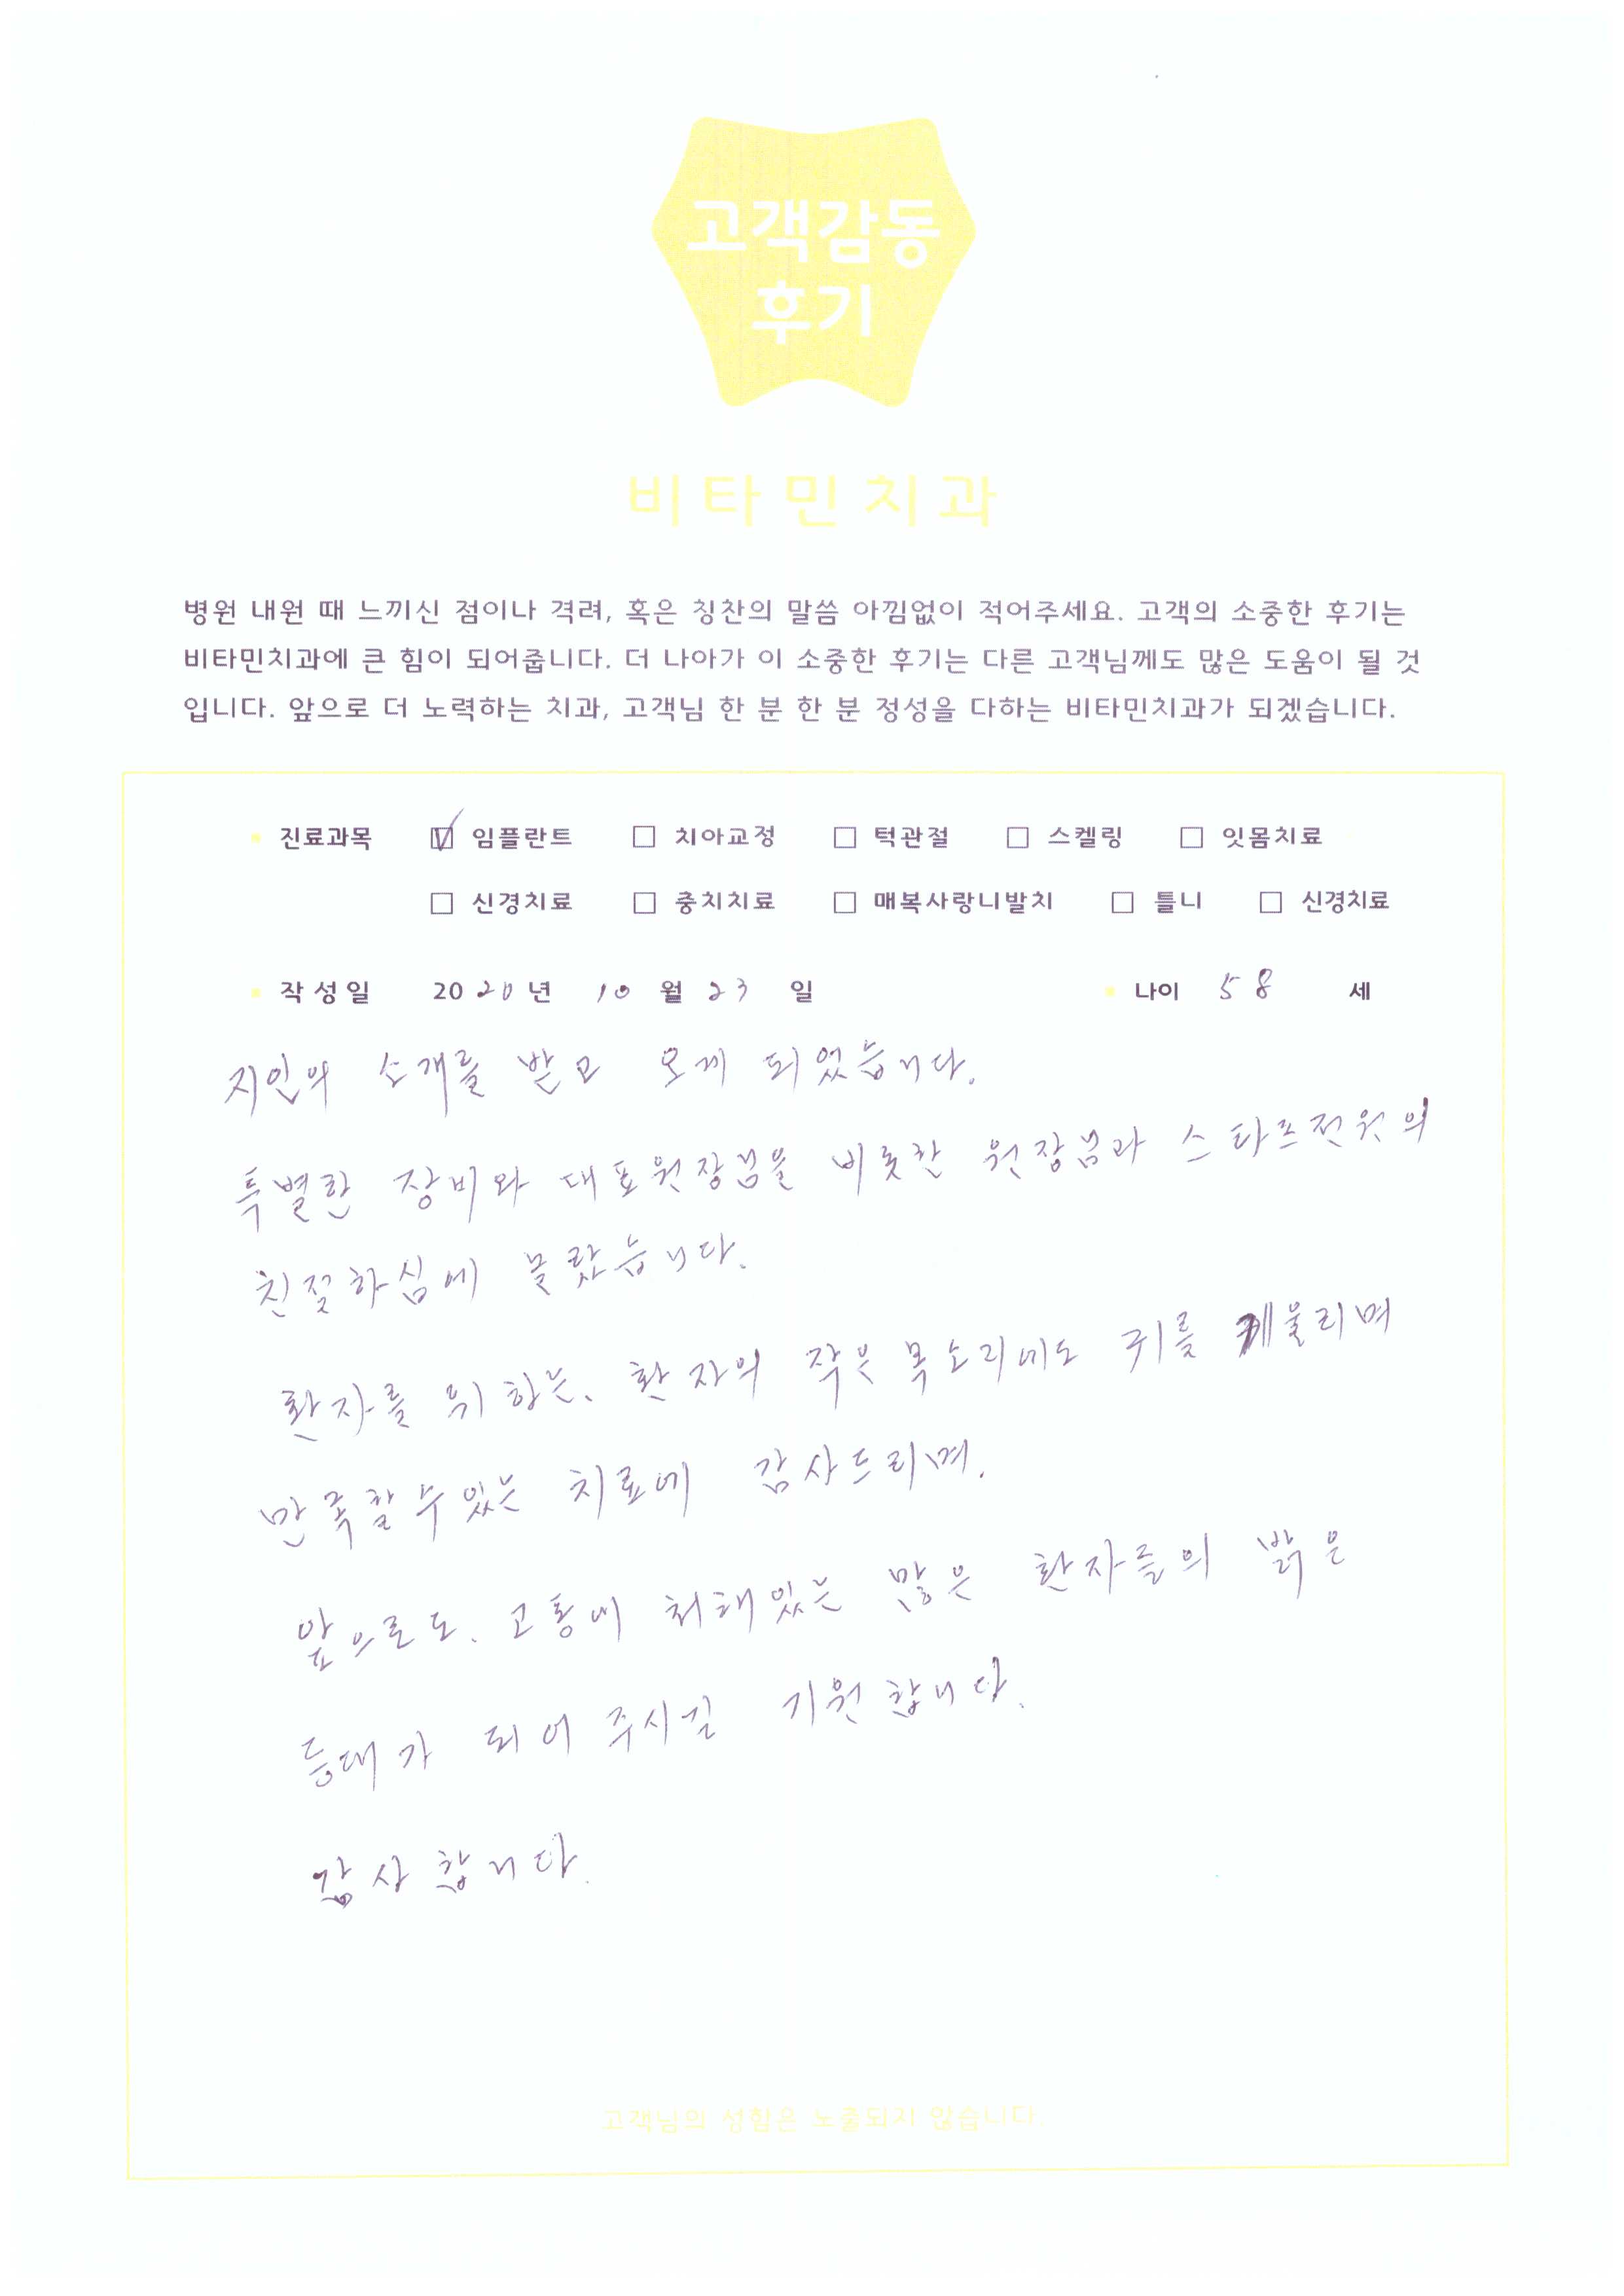 고객감동
후기
비타민치과
병원 내원 때 느끼신 점이나 격려, 혹은 칭찬의 말씀 아낌없이 적어주세요. 고객의 소중한 후기는
비타민치과에 큰 힘이 되어줍니다. 더 나아가 이 소중한 후기는 다른 고객님께도 많은 도움이 될 것
입니다. 앞으로 더 노력하는 치과, 고객님 한 분 한 분 정성을 다하는 비타민치과가 되겠습니다.
진료과목 ☑ 임플란트 □ 치아교정 □ 턱관절 □ 스켈링 □ 잇몸치료
□ 신경치료 □ 충치치료 □ 매복사랑니발치 □ 틀니 □ 신경치료
작성일 2020년 10월 23일 나이 58 세
지인의 소개를 받고 오게 되었습니다.
특별한 장비와 대표원장님을 비롯한 원장님과 스타프전원의
친절하심에 놀랐습니다.
환자를 위하는, 환자의 작은 목소리에도 귀를 게울리며
만족할수있는 치료에 감사드리며.
앞으로도. 고통에 처해있는 많은 환자들의 밝은
등대가 되어 주시길 기원합니다.
감사합니다.
고객님의 성함은 노출되지 않습니다.